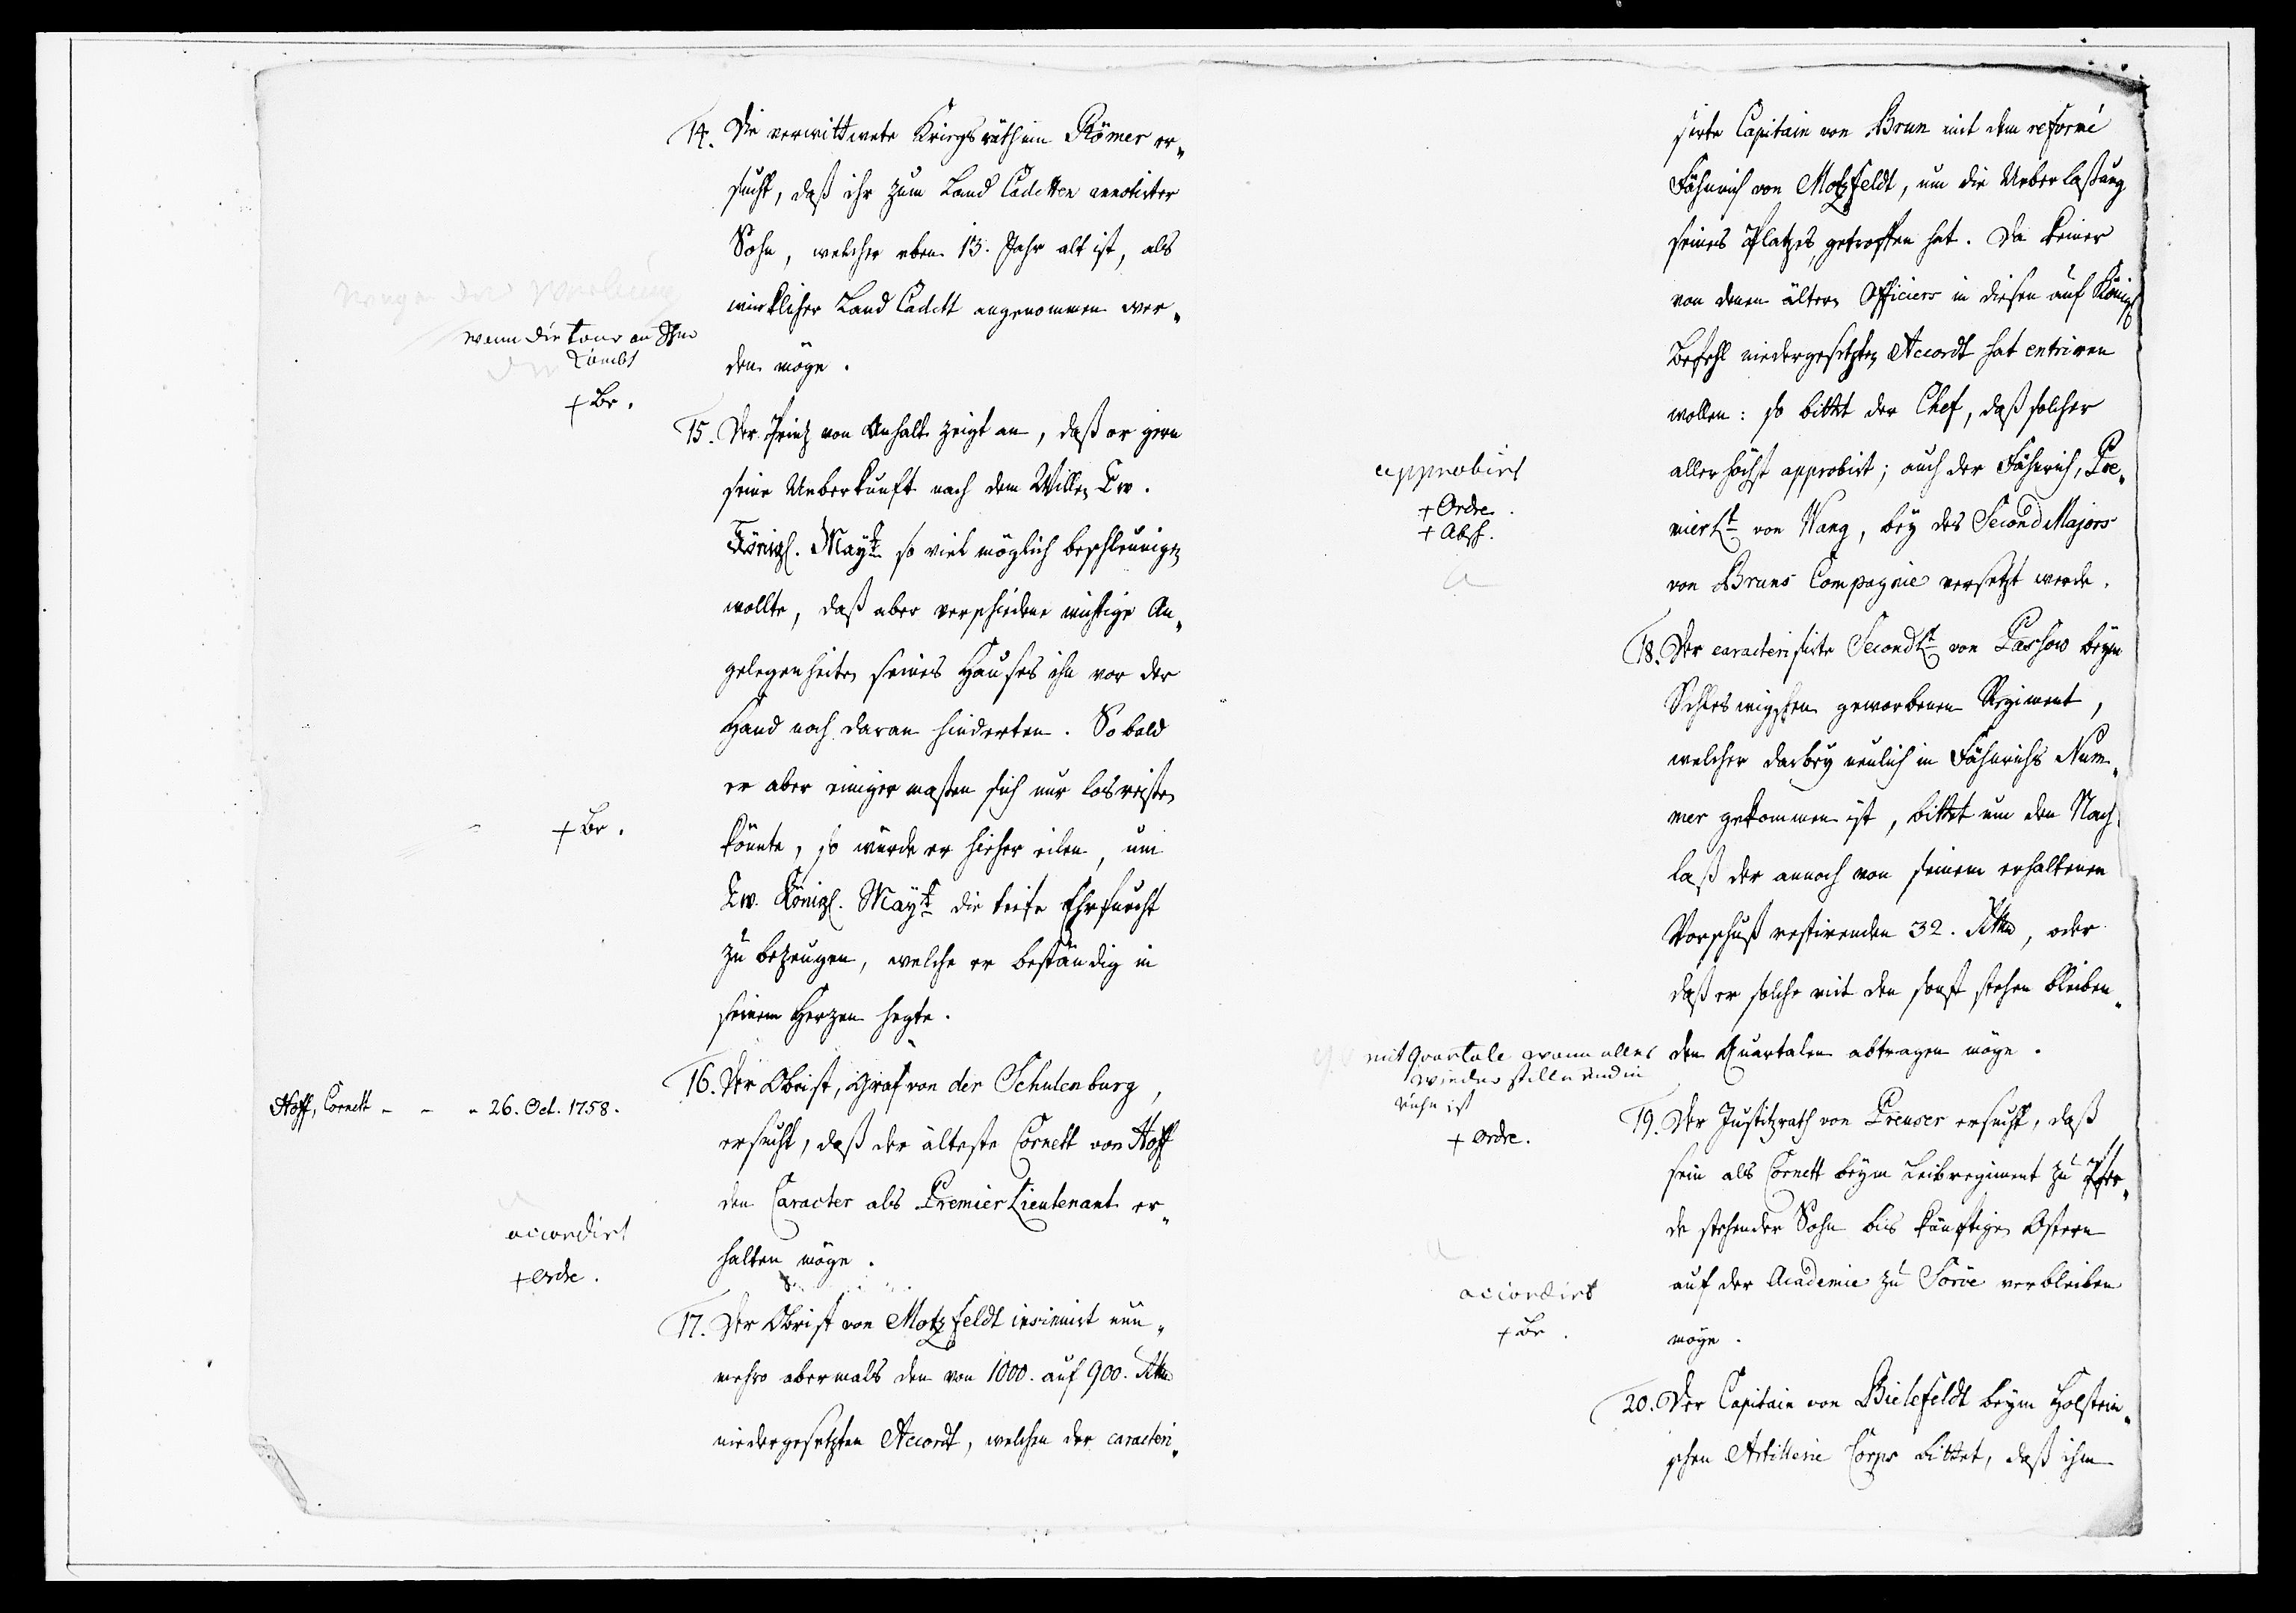 14. Die verwittwete Kriegsräthin Römer er-
sucht, daß ihr zum Land Cadetten annotirter
Sohn, welcher eben 13. Jahr alt ist, als
wirklicher Land Cadett angenommen wer-
den möge.
wenn die tour an Ihm
kömbt
+ Br.
15. Der Prinz von Anhalt zeigt an, daß er gern
seine Ueberkunft nach dem Willen Ew.
Königl. Mayt. so viel möglich beschleunigen
wollte, daß aber verschiedene wichtige An-
gelegenheiten seines Hauses ihn vor der
Hand noch daran hinderten. So bald
er aber einiger maßen sich nur losreißen
könnte, so würde er hieher eilen, um
Ew. Königl. Mayt. die tiefe Ehrfurcht
zu bezeugen, welche er beständig in
seinem Herzen hegte.
+ Br.
16. Der Obrist, Graf von der Schulenburg,
ersucht, daß der älteste Cornett von Hoff
den Caracter als Premier Lieutenant er-
halten möge.
Hoff, Cornett - - - 26. Oct. 1758.
accordirt
+ Ordre.
17. Der Obrist von Motzfeldt insinuirt nun-
mehro abermals den von 1000. auf 900. Rthlr
niedergesetzten Accordt, welchen der caracteri-
sirte Capitain von Brun mit dem reformé
Fähnrich von Motzfeldt, um die Ueberlaßung
seines Platzes, getroffen hat. Da keiner
von denen ältern Officiers in diesen auf Königl
Befehl niedergesetzten Accordt hat entriren
wollen: so bittet der Chef, daß solcher
allerhöchst approbirt; auch der Fähnrich, Pre-
mierLt. von Wang, bey des Second Majors
von Bruns Compagnie versetzt werde.
approbirt
+ Ordre.
+ Absch.
18. Der caracterisirte SecondLt. von Passow beym
Schleswigschen geworbenen Regiment,
welcher darbey neulich in Fähnrichs Num-
mer gekommen ist, bittet um den Nach-
laß der annoch von seinem erhaltenen
Vorschuß restirenden 32. Rthlr, oder
daß er solche mit den sonst stehen bleiben-
den Quartalen abtragen möge.
mit Quartale wann alles
wieder stille und in
ruhe ist
+ Ordre.
19. Der Justitzrath von Preuser ersucht, daß
sein als Cornett beym Leibregiment zu Pfer-
de stehender Sohn bis künftigen Ostern
auf der Academie zu Soröe verbleiben
möge.
accordirt
+ Br.
20. Der Capitain von Bielefeldt beym Holstein-
schen Artillerie Corps bittet, daß ihm